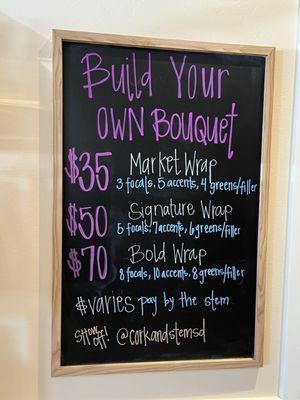 Build Your
OWN BOUQUET
$35 Market Wrap
3 focals, 5 accents, 4 greens/filler
$50 Signature Wrap
5 focals, 7 accents, 6 greens/filler
$70 Bold Wrap
8 focals, 10 accents, 8 greens/filler
$varies pay by the stem
SHOW OFF! @corkandstemsd